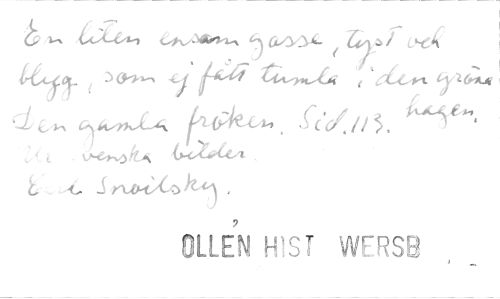 En liten ensam gosse, tyst och
blyg, som ej fått tumla i den gröna
hagen.
Den gamla fröken. Sid. 113.
Ur Svenska bilder.
Carl Snoilsky.
OLLÉN HIST WERSB